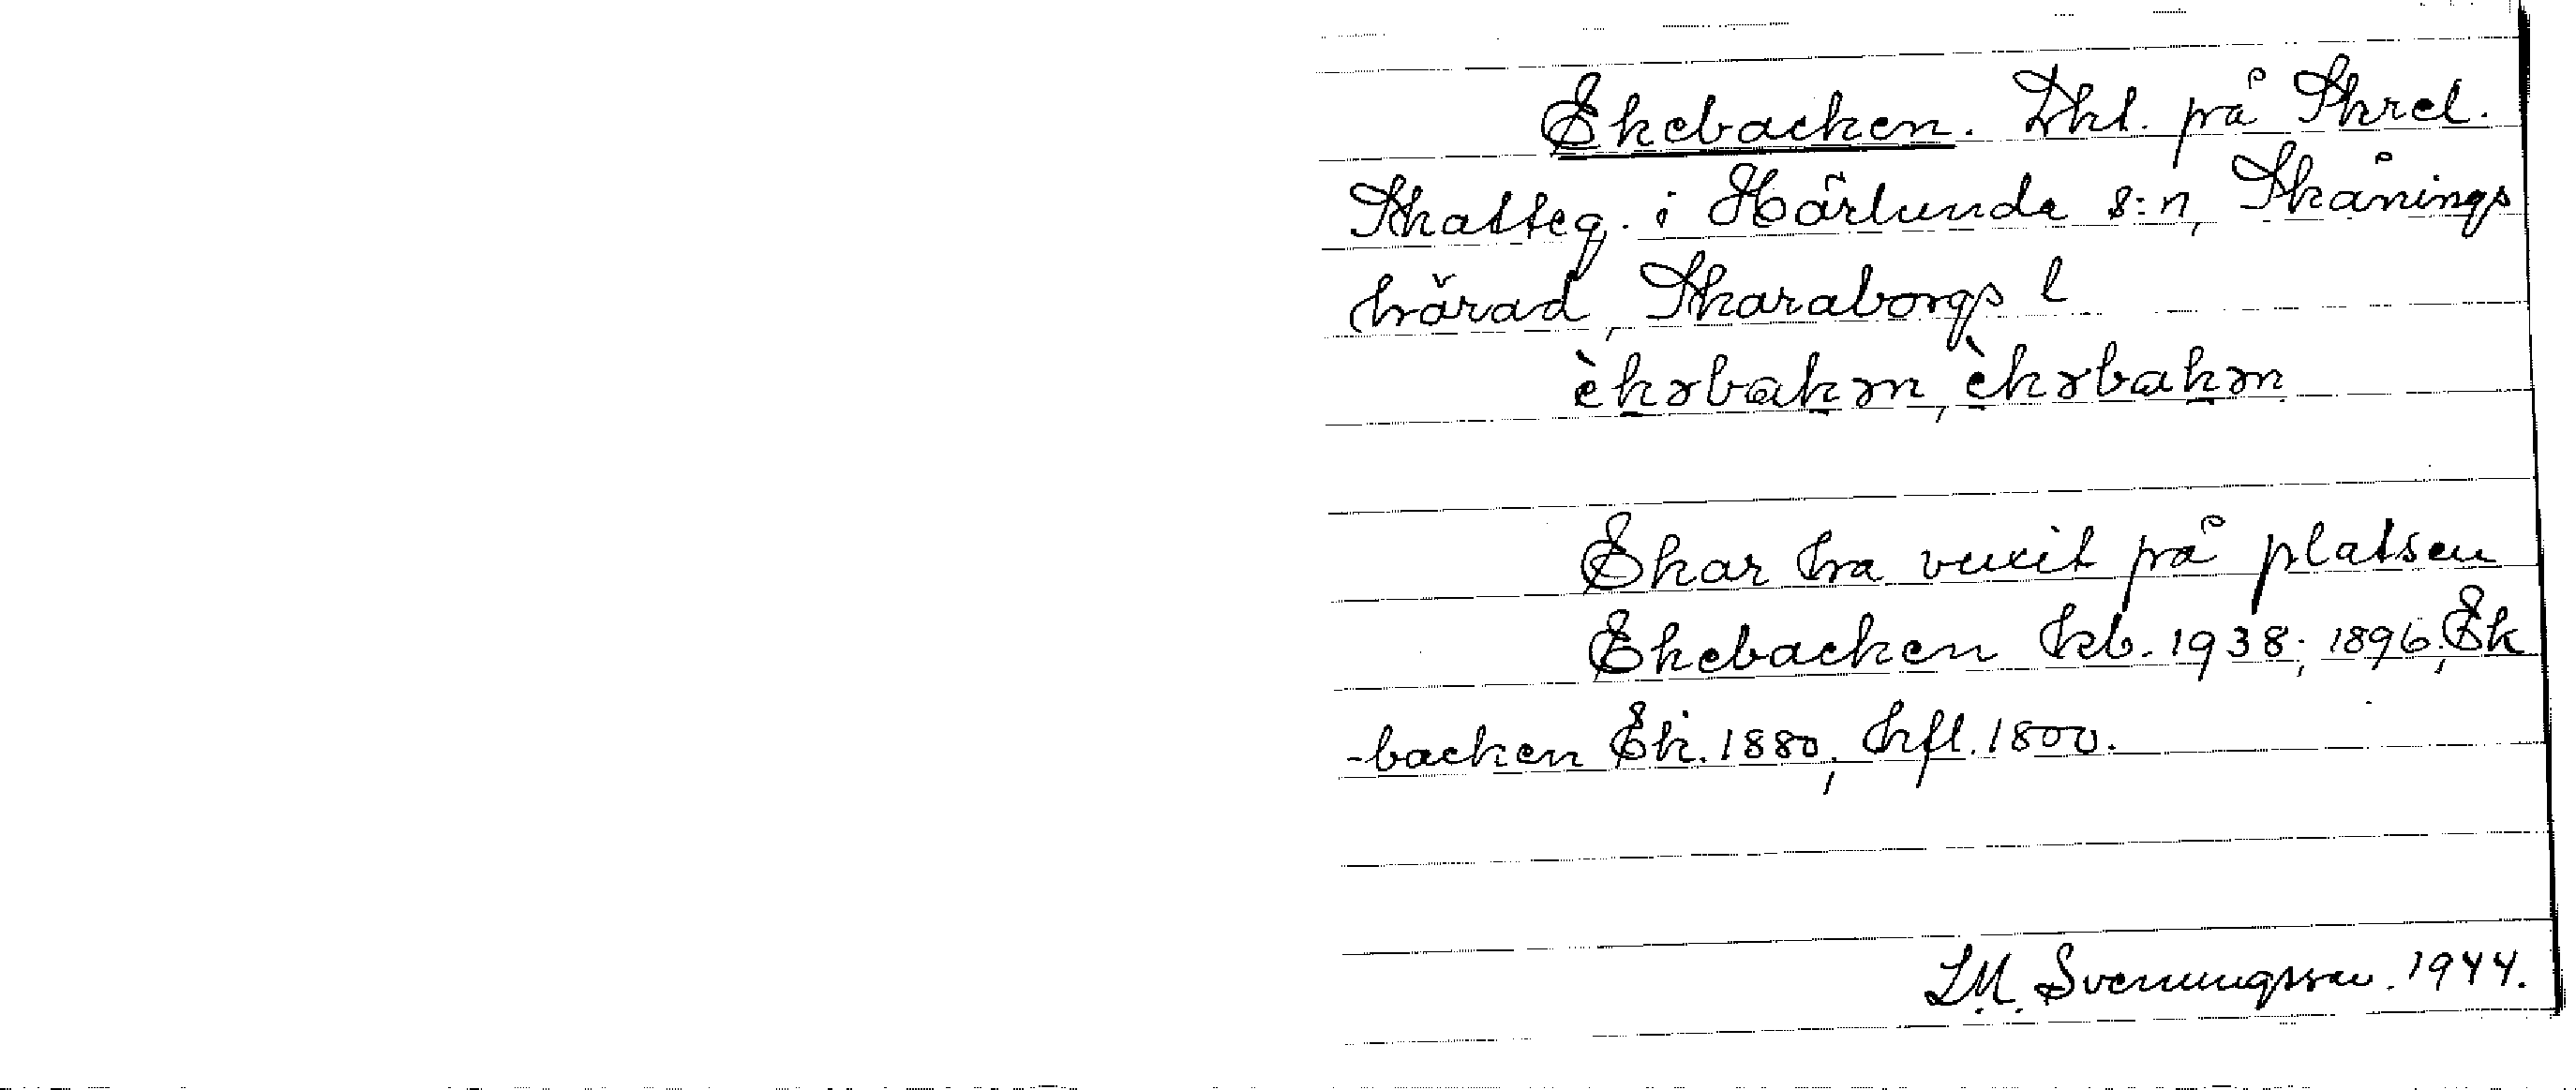 Ekebacken. Lht. på Skrel.
Skatteg. i Härlunda s:n, Skånings
härad, Skaraborgs l
èkəbakən, èkəbakən
Ekar ha vuxit på platsen
Ekebacken kb. 1938; 1896; Ek
-backen Ek. 1880; hfl. 1800.
L.M. Svenungsson. 1944.